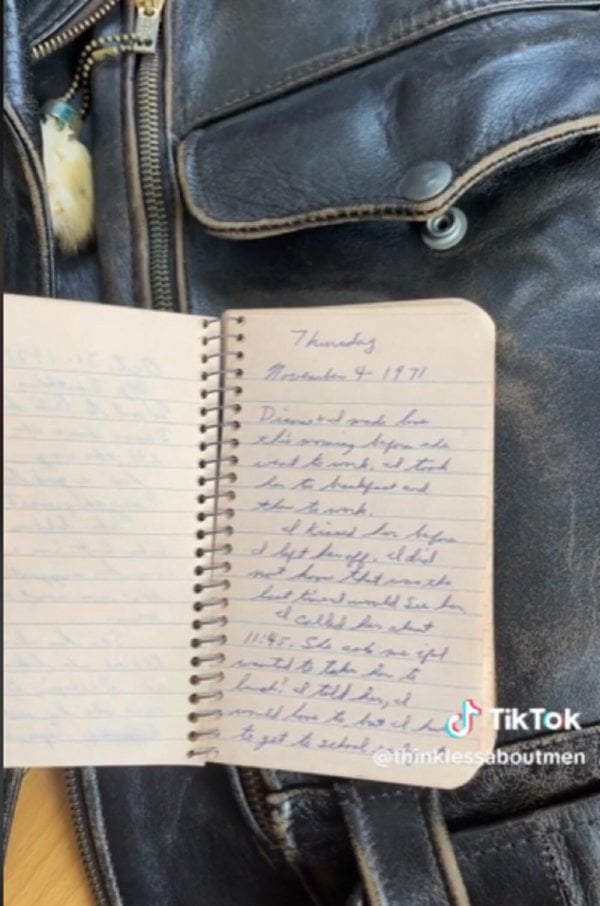 Thursday
November 4 1971
Diane + I made love
this morning before she
went to work. I took
her to breakfast and
then to work.
I kissed her before
I left her off. I did
not know that was the
last time I would see her.
I called her about
11:45. She ask me if I
wanted to take her to
lunch? I told her, I
would love to, but I have
to get to school
TikTok
@thinklessaboutmen